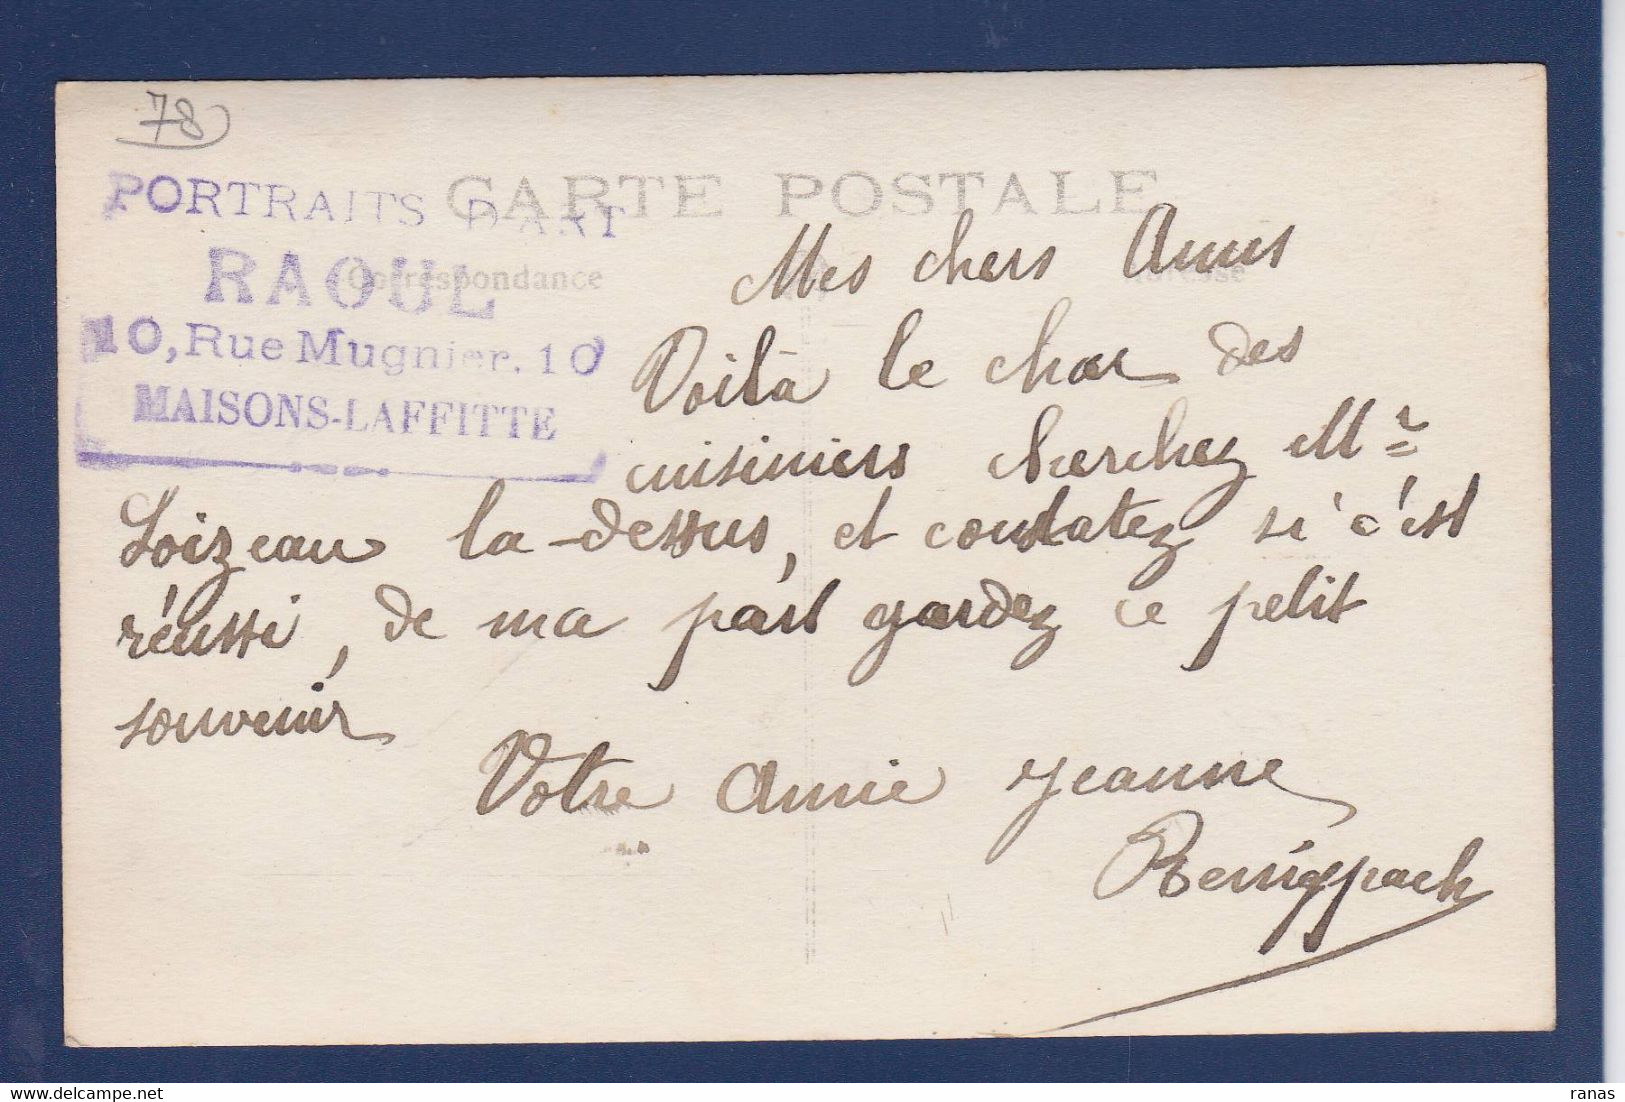 78
CARTE POSTALE
PORTRAITS D'ART
RAOUL
Correspondance
Adresse
10, Rue Mugnier. 10
MAISONS-LAFFITTE
Mes chers Amis
Voilà le char des
cuisiniers cherchez Mr
Loizeau la-dessus, et constatez si c'est
réussi, de ma part gardez ce petit
souvenir
Votre Amie Jeanne
ranas